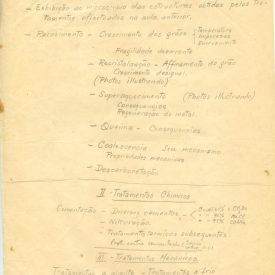 - Exibição ao microscopio das estructuras obtidas pelos tra-
tamentos effectuados na aula anterior.
- Recozimento - Crescimento dos grãos Temperatura
Impurezas
Fragilidade decorrente
- Recristalização - Affinamento do grão
Crescimento desigual.
(Photos illustrando)
- Superaquecimento (Photos illustrando)
Consequencias
Regeneração do metal
- Queima - Consequencias
- Coalescencia Seu mecanismo
Propriedades mecanicas
- Descarbonetação
II - Tratamentos Chimicos
Cementação - Diversos cementos
- Nitruração.
- Tratamentos termicos subsequentes
III - Tratamentos Mecanicos
Tratamentos a quente - Tratamentos a frio